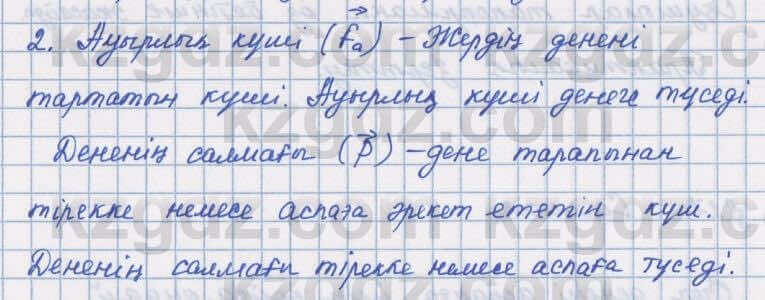 2. Ауырлық күші (F⃗ₐ) – Жердің денені
тартатын күші. Ауырлық күші денеге түседі.
Дененің салмағы (P⃗) – дене тарапынан
тірекке немесе аспаға әрекет ететін күш.
Дененің салмағы тірекке немесе аспаға түседі.